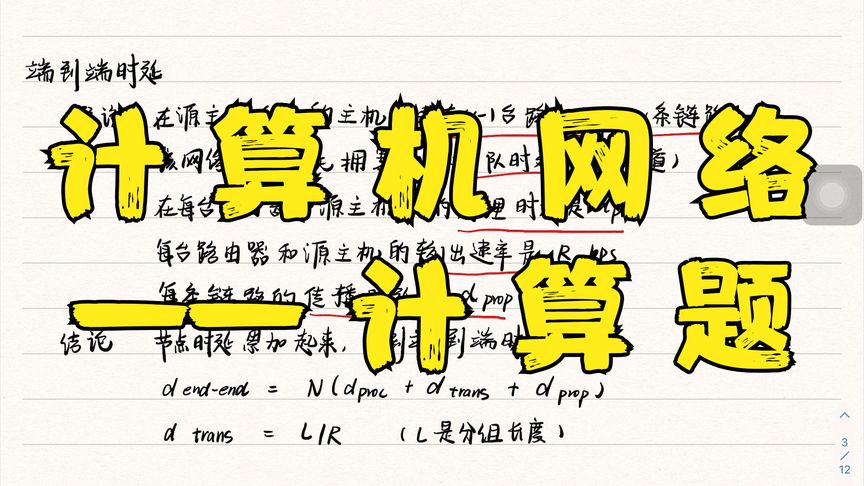 端到端时延
在源主 的主机 -1台路 条链路
该网络 拥 队时 道)
在每台 源主机 的 理时
每台路由器和源主机的输出速率是R bps
每条链路的传播 d prop
结论 节点时延累加起来, 到 到端时
d end-end = N(d proc + d trans + d prop)
d trans = L/R (L是分组长度)
计算机网络
——计算题
3
/
12